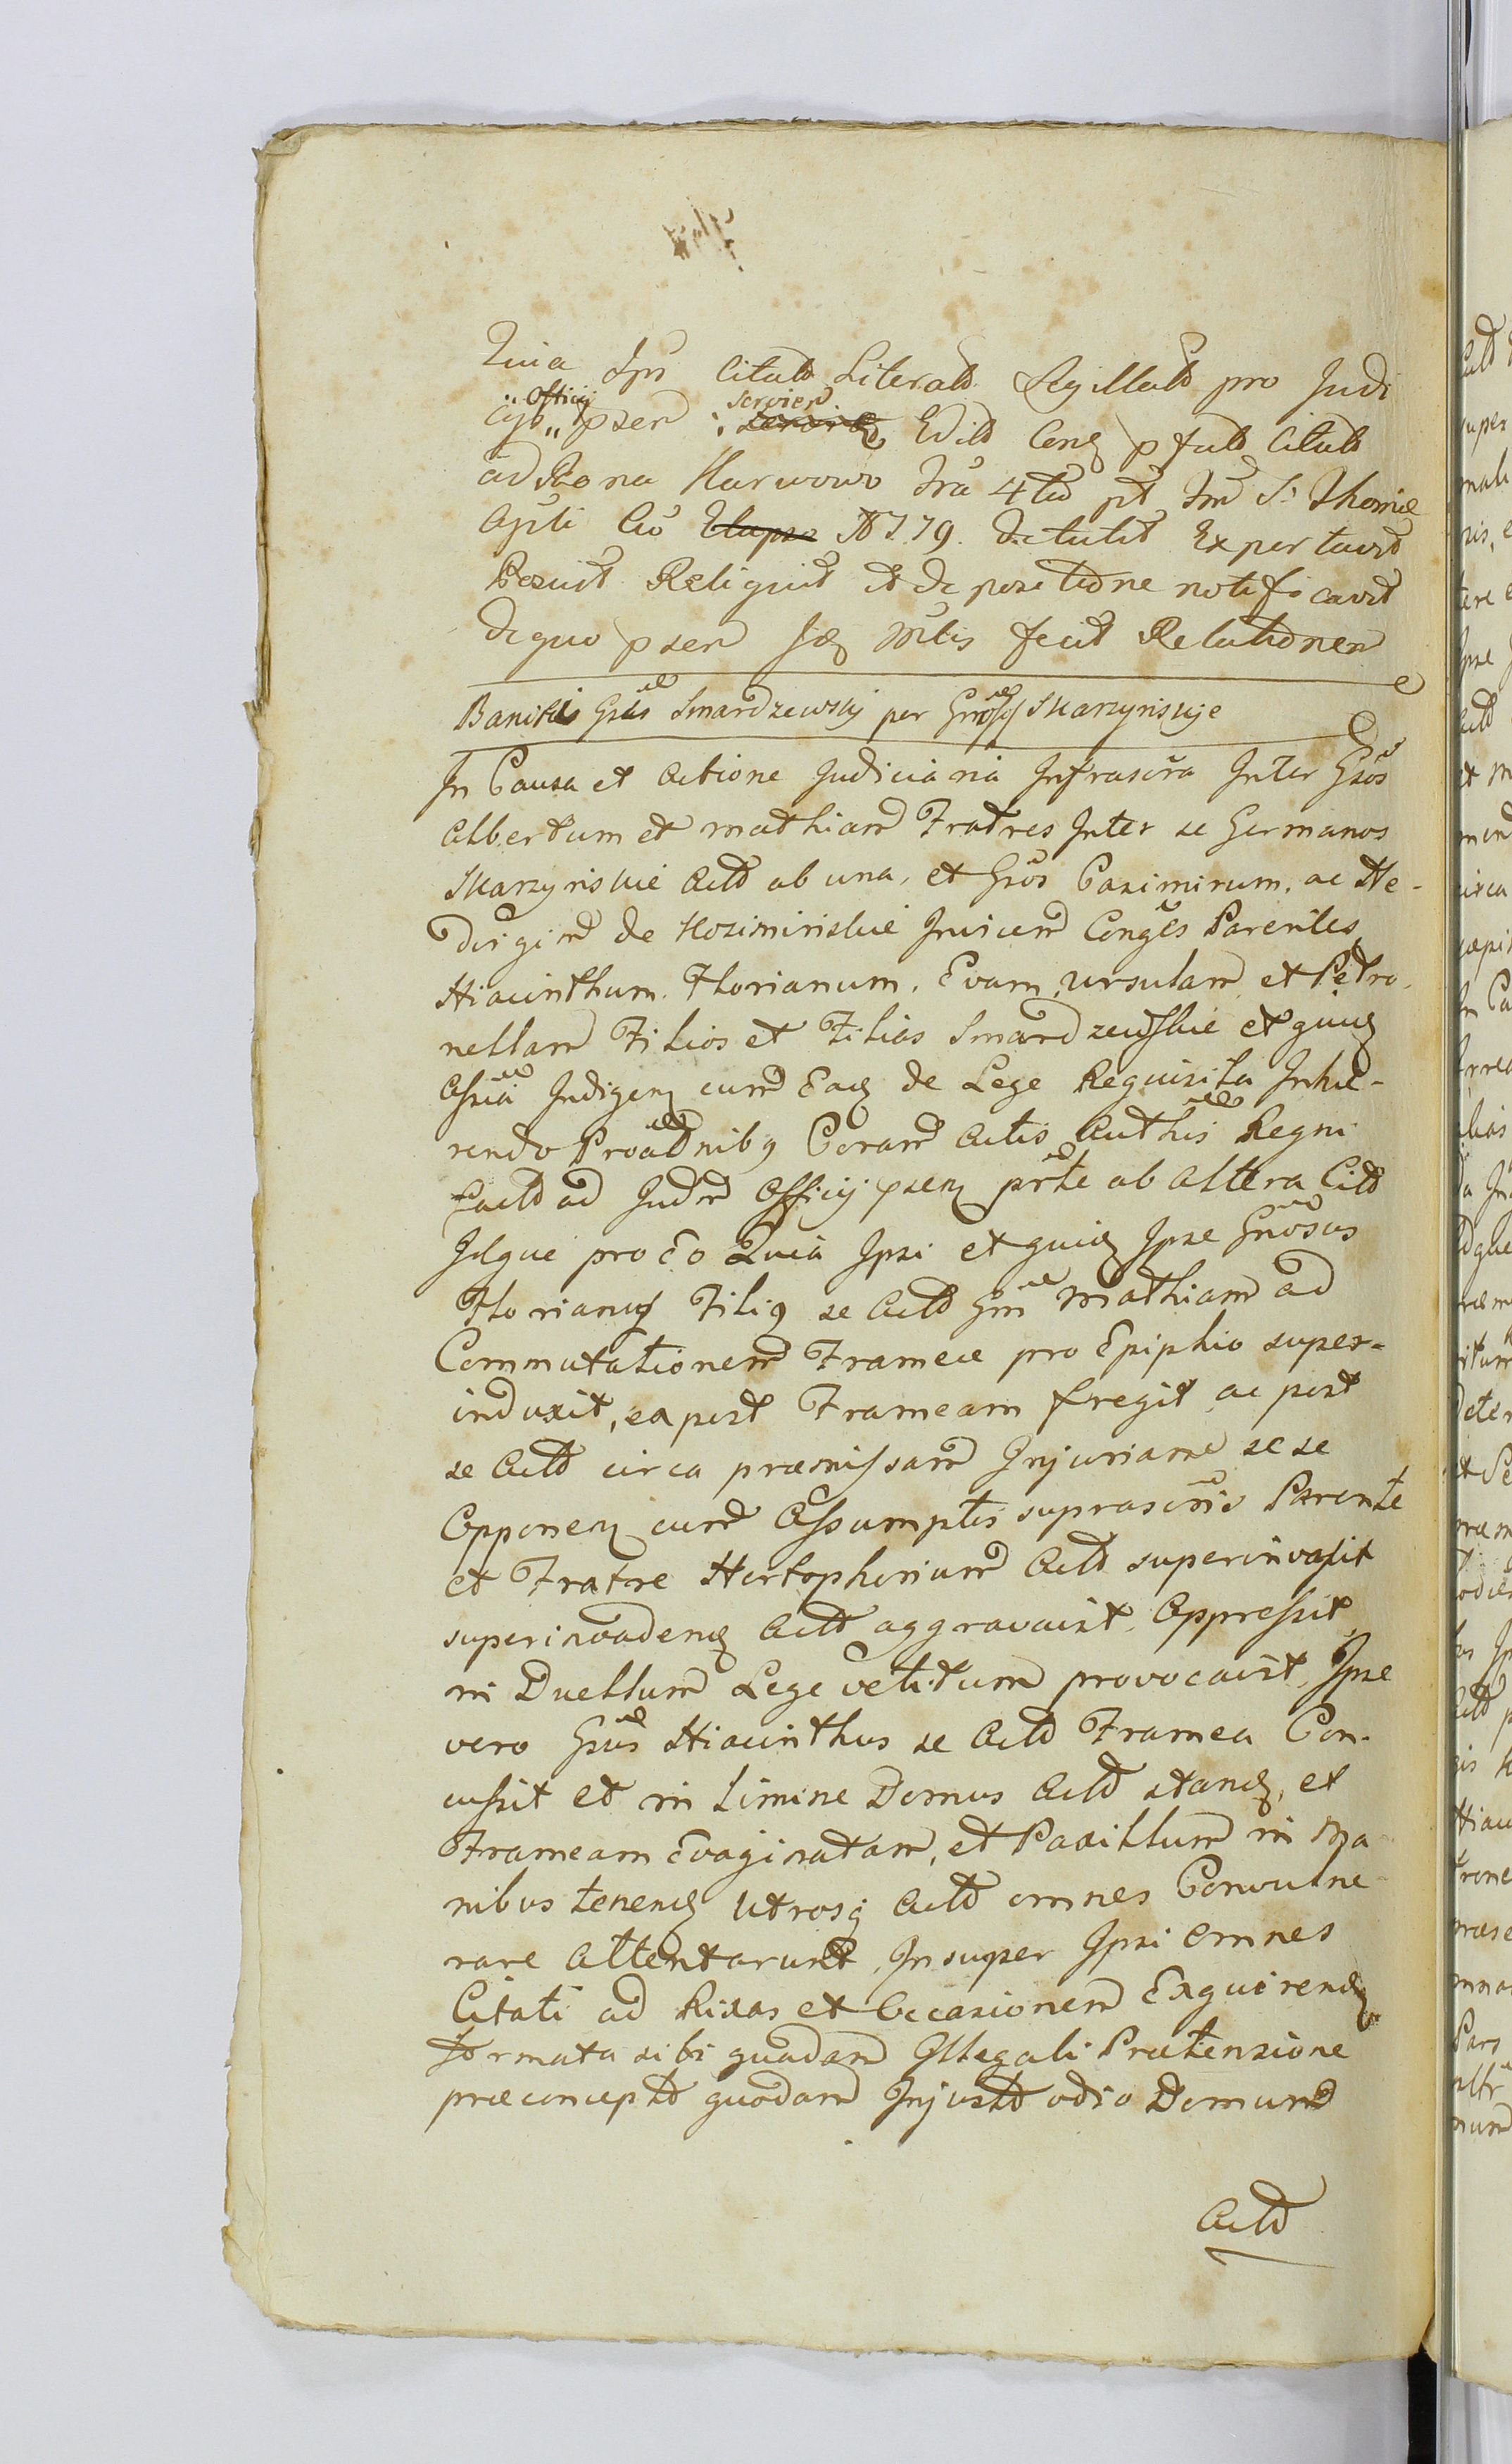 Quia Ipse Citatoes Literatoes Sigillatoes pro Judi
cijs Officij psen: servien Edito Cong p fato Citato
ad Bona Karwowo Fra 4to pt Fm S: Thomæ
Apsti Ao 1779. detulit Exportavit
Posuit Reliquit et de positione notificavit
de quo psen sæ mltis fecit Relationem
Banitio Gsus Smardzewskij per Gnosos Skarzynskije
In Causa et Actione Judiciaria Infrascra Inter Gsos
Albertum et Mathiam Fratres Inter se Germanos
Skarzynskie Acto ab una, et Gsos Casimirum, ac He-
dvigim de Kosiminskie Invicem Conges Parentes,
Hiacinthum, Florianum, Evam, Ursulam, et Petro-
nellam Filios et Filias Smardzewskie et quiuq
Assia Indigen cum Eaq de Lege Requisita Inhæ-
rendo Proaonibq Coram Actis Authis Regni
facto ad Judm Officij psen prte ab Altera Cito
Idque pro Eo Quia Ipsi et quiq Ipse Gnosus
Florianus Filiq se Acto Gm Mathiam ad
Commutationem Frameæ pro Epiphio super-
induxit, ex post Frameam fregit, ac post
se Acto circa præmissam Injuriam se se
Opponen cum Assumptis suprascris Parente
et Fratre Hortophorium Acto superinvasit
superinvadenq Acto aggravavit, Oppressit,
in Duellum Lege vetitum provocavit, Ipse
vero Gsus Hiacinthus se Acto Framea Con-
cussit et in Limine Domus Acto stanq, et
Frameam Evaginatam, et Paxillum in Ma-
nibus tenenq Utrosq Acto omnes Convulne-
rare Attentarunt, Insuper Ipsi omnes
Citati ad Rixas et Occasionem Exquirenq
formata sibi quadam Illegali Prætensione
præconcepto quodam Injusto odio Domum
Acto